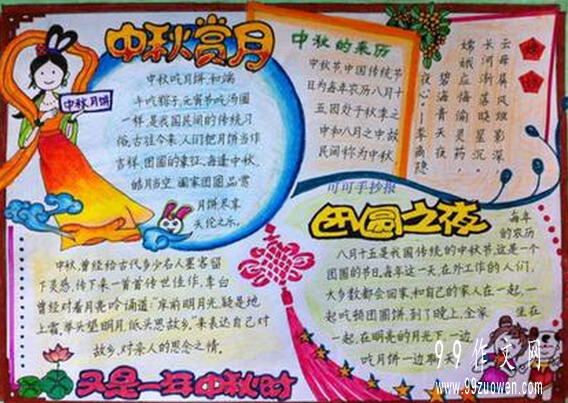 中秋赏月
中秋月饼
中秋吃月饼,和端
午吃粽子、元宵节吃汤圆
一样,是我国民间的传统习
俗,古往今来,人们把月饼当作
吉祥、团圆的象征,每逢中秋,
皓月当空,阖家团圆,品赏
月饼,尽享
天伦之乐。
中秋的来历
中秋节中国传统节
日为每年农历八月十
五因处于秋季之
中和八月之中故
民间称为中秋
嫦娥
云母屏风烛影深,
长河渐落晓星沉。
嫦娥应悔偷灵药,
碧海青天夜
夜心。——李商隐
可可手抄报
团圆之夜
每年
的农历
八月十五是我国传统的中秋节,这是一个
团圆的节日,每年这一天,在外工作的人们,
大多数都会回家,和自己的家人在一起,一
起吃顿团圆饼,到了晚上,全家
坐在
一起,在明亮的月光下一边
吃月饼一边
中秋,曾经给古代多少名人墨客留
下灵感,传下来一首首传世佳作,李白
曾经对着月亮吟诵道:“床前明月光,疑是地
上霜,举头望明月,低头思故乡。”来表达自己对
故乡,对亲人的思念之情。
又是一年中秋时
99作文网
www.99zuowen.com